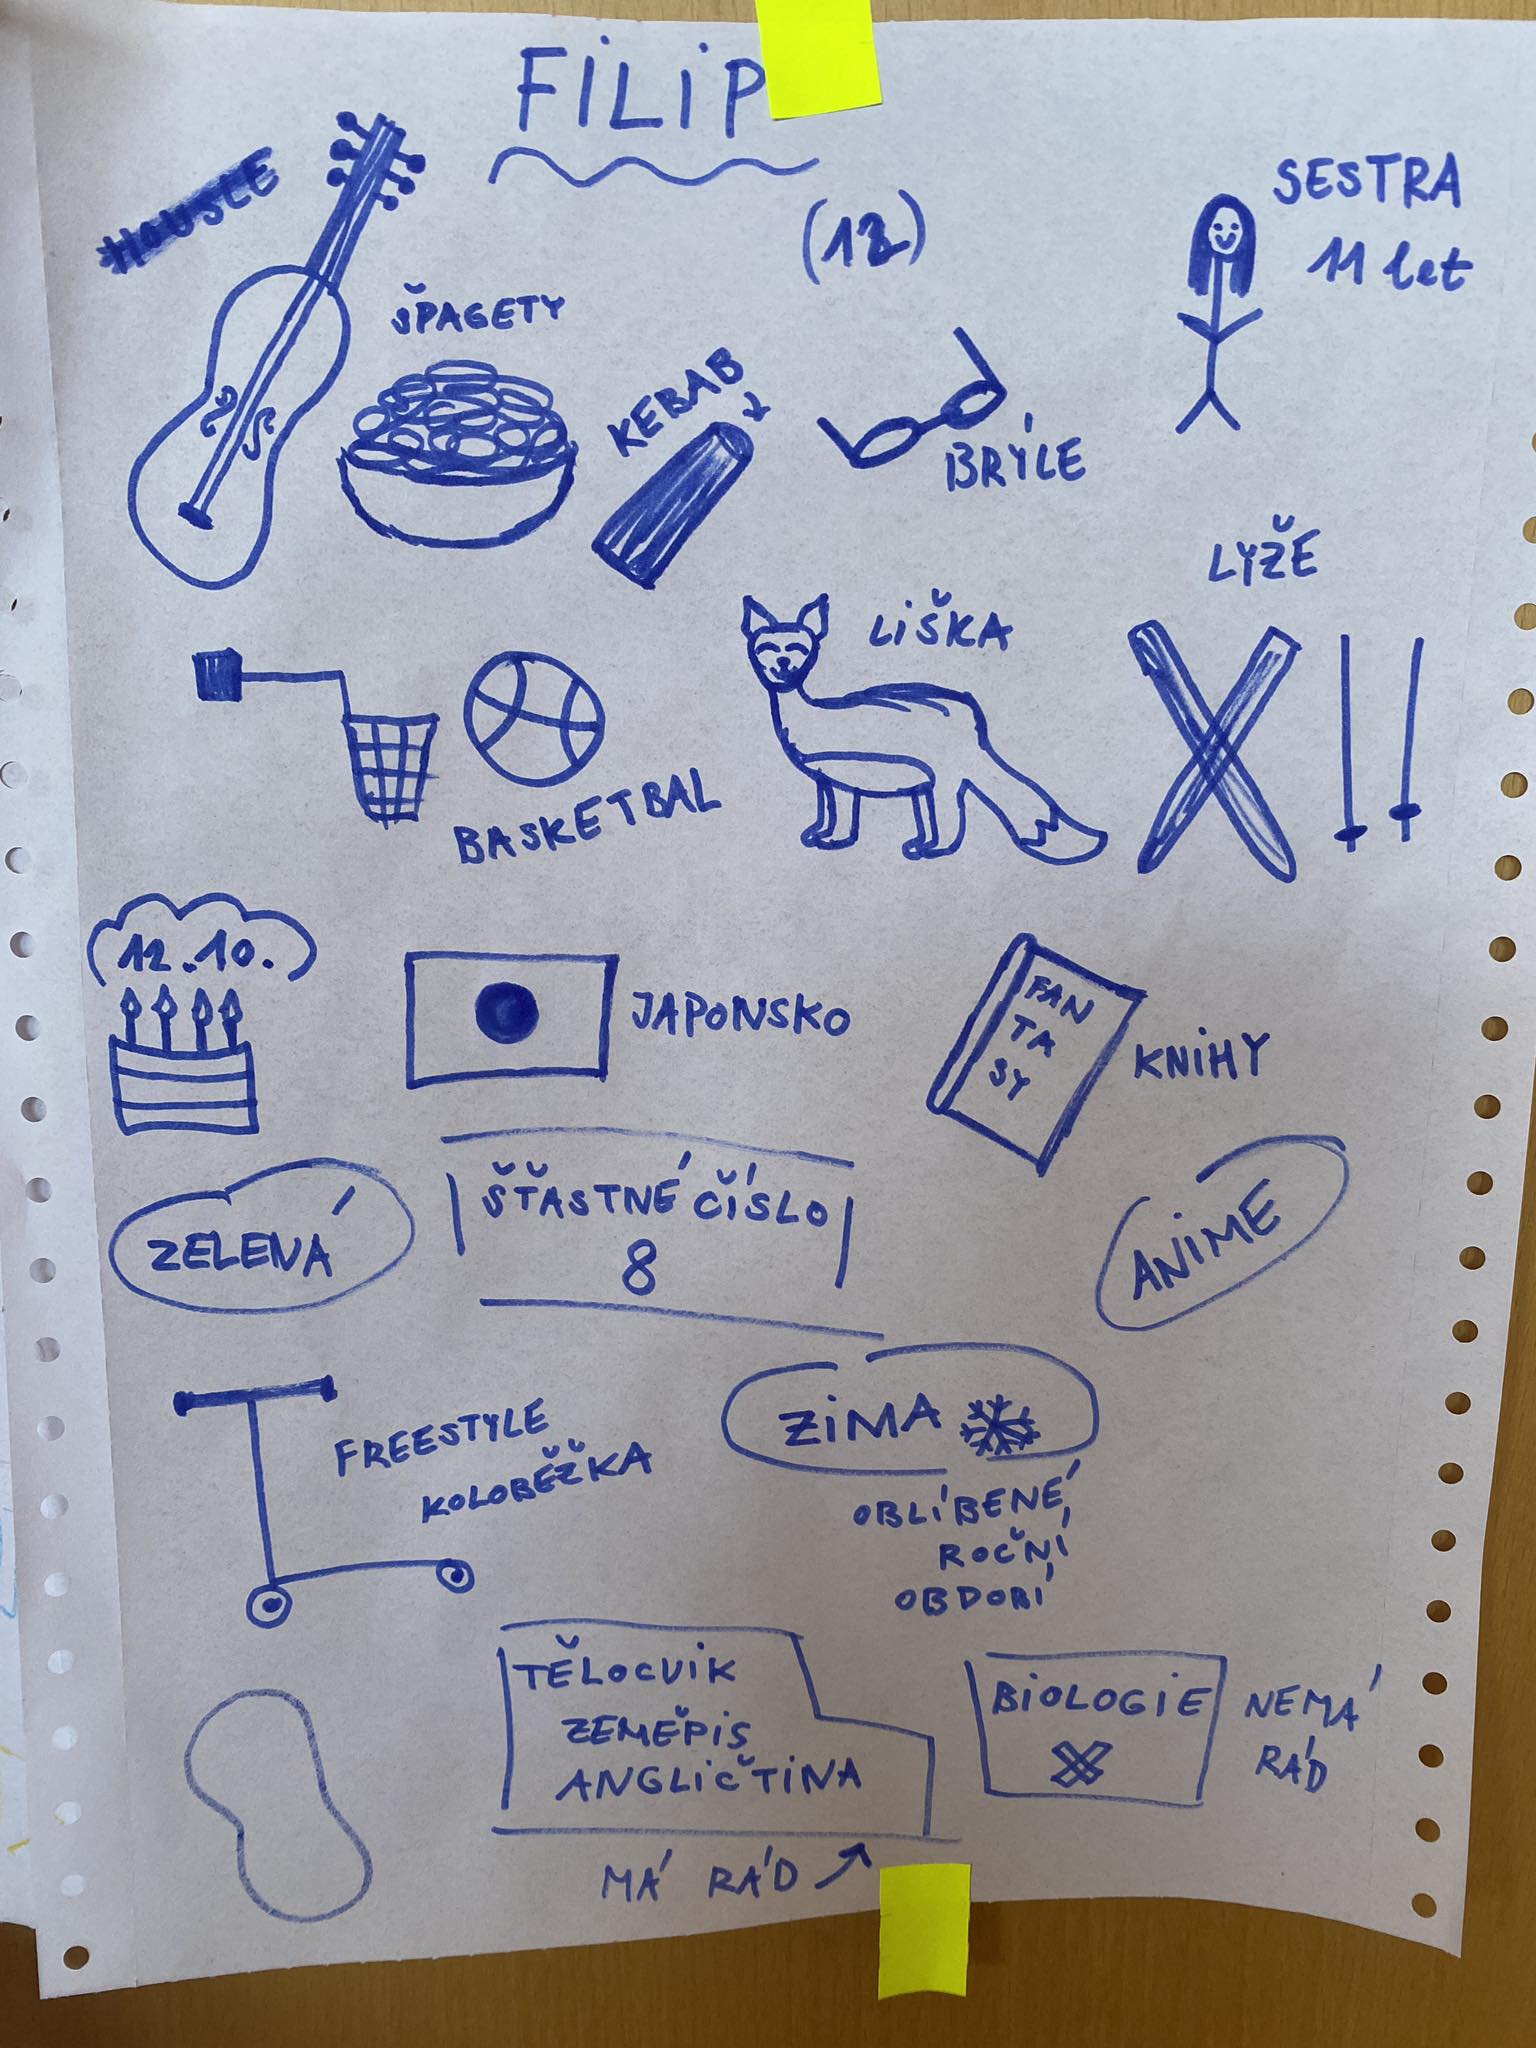 FILIP
HOUSLE
(12)
SESTRA
11 let
ŠPAGETY
KEBAB
BRÝLE
LYŽE
LIŠKA
BASKETBAL
12.10.
JAPONSKO
FAN
TA
SY
KNIHY
ZELENÁ
ŠŤASTNÉ ČÍSLO
8
ANIME
FREESTYLE
KOLOBĚŽKA
ZIMA
OBLÍBENÉ
ROČNÍ
OBDOBÍ
TĚLOCVIK
ZEMĚPIS
ANGLIČTINA
MÁ RÁD
BIOLOGIE
NEMÁ
RÁD